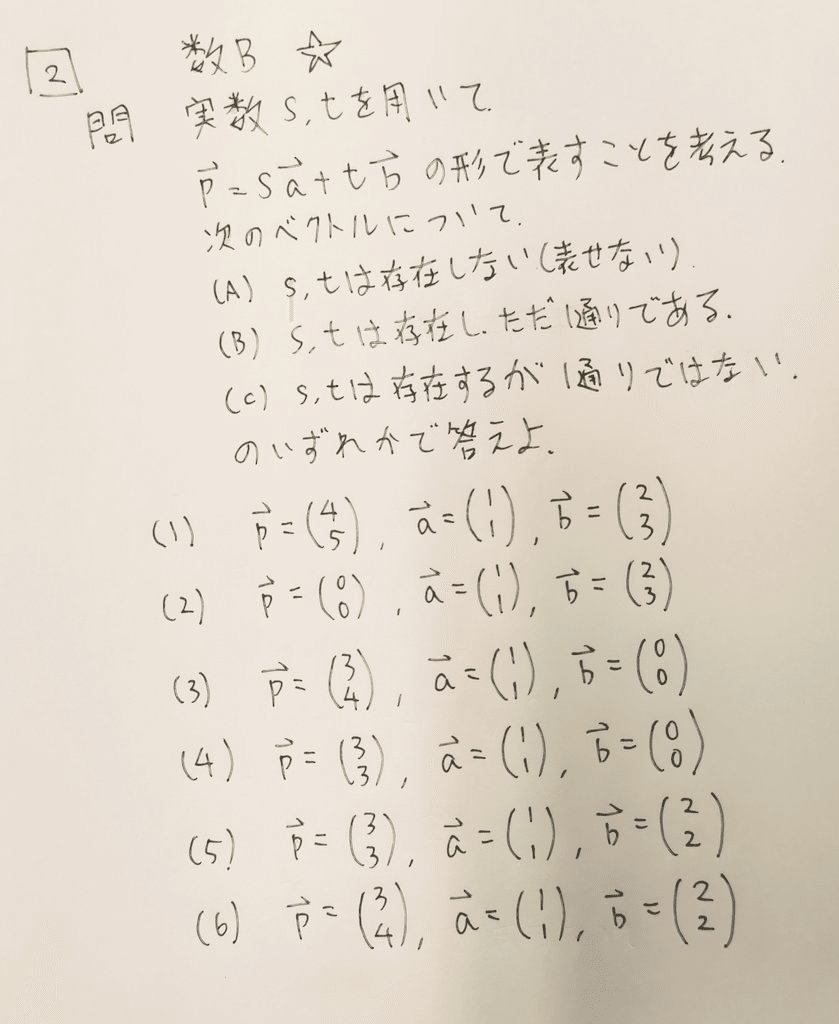 2 数B ☆
問 実数 s,tを用いて
p⃗=sa⃗+tb⃗ の形で表すことを考える.
次のベクトルについて.
(A) s,tは存在しない(表せない)
(B) s,tは存在し.ただ1通りである.
(c) s,tは存在するが1通りではない.
のいずれかで答えよ.
(1) p⃗=(4 5), a⃗=(1 1), b⃗=(2 3)
(2) p⃗=(0 0), a⃗=(1 1), b⃗=(2 3)
(3) p⃗=(3 4), a⃗=(1 1), b⃗=(0 0)
(4) p⃗=(3 3), a⃗=(1 1), b⃗=(0 0)
(5) p⃗=(3 3), a⃗=(1 1), b⃗=(2 2)
(6) p⃗=(3 4), a⃗=(1 1), b⃗=(2 2)